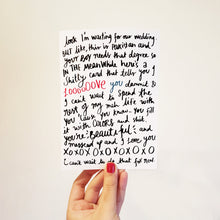 look I'm waiting for our wedding
BUT like, this is PAKISTAN and
your BOY needs that degree. so
IN THE MEANWHILE here's a
Shitty card that tells you I
LOOOOOVE you dammit &
I can't wait to spend the
rest of my meh life with
you 'cause you know.. you fill
it with COLORS and shit.
you're BEAUTIFUL and
my mascot and I Love you
XOXOXOXOXOXOXOX
I can't wait to do that for real